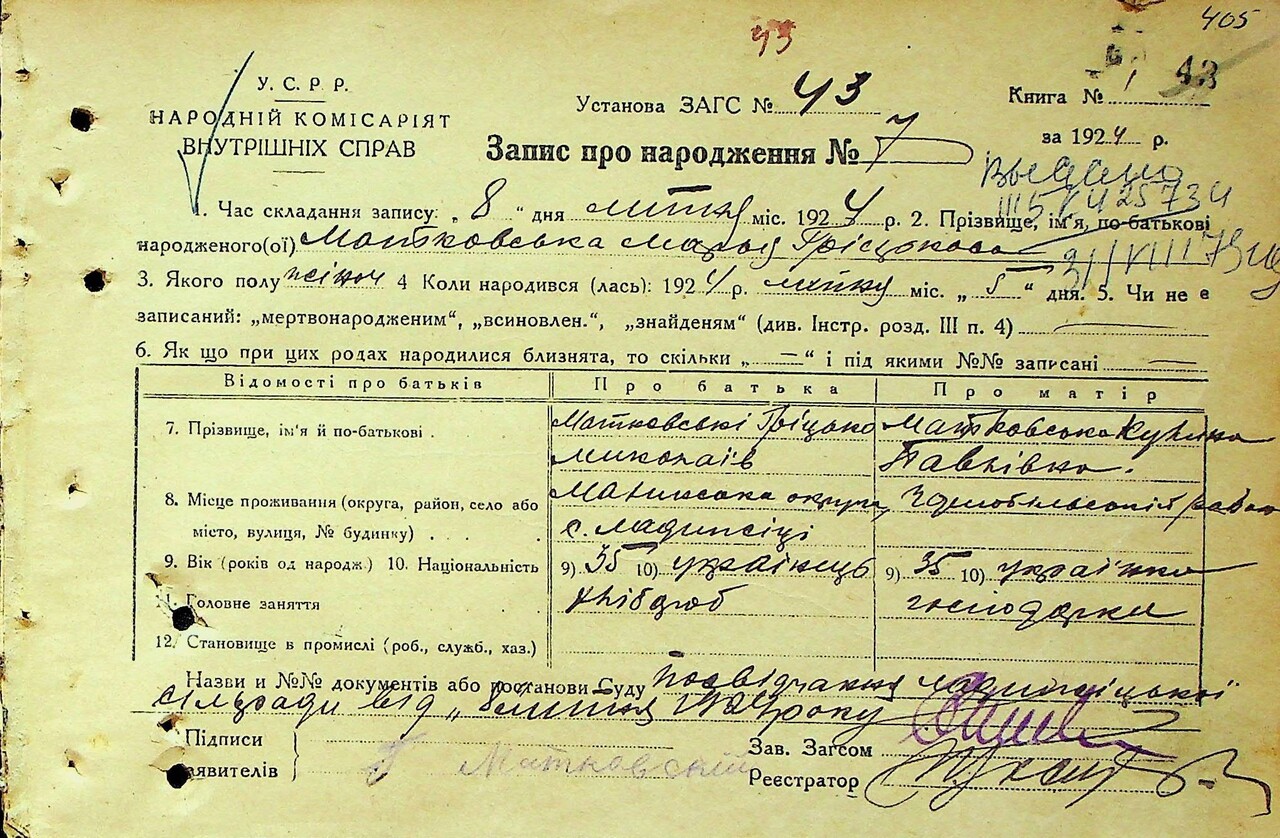 405
43
У. С. Р. Р.
НАРОДНІЙ КОМІСАРІЯТ
ВНУТРІШНІХ СПРАВ
Установа ЗАГС № 43
Книга № 1
43
Запис про народження № 7
за 1924 р.
1. Час складання запису: „ 8 “ дня липня міс. 1924 р. 2. Прізвище, ім'я, по-батькові
народженого(ої) Матковська Марья Гріцькова
3. Якого полу жіноч 4 Коли народився (лась): 1924 р. липню міс. „ 5 “ дня. 5. Чи не є
записаний: „мертвонародженим“, „всиновлен.“, „знайденям“ (див. Інстр. розд. III п. 4)
6. Як що при цих родах народилися близнята, то скільки „ — “ і під якими №№ записані —
Відомості про батьків Про батька Про матір
7. Прізвище, ім'я й по-батькові . Матковські Гріцько Матковська
Миколаїв Павківна.
8. Місце проживання (округа, район, село або округи, Чорнобильський район
місто, вулиця, № будинку) . . . с.
9. Вік (років од народж.) 10. Національність 9) 35 10) українець 9) 35 10) українка
11. Головне заняття хлібороб господарка
12. Становище в промислі (роб., служб., хаз.)
Назви и №№ документів або постанови Суду посвідчання
сільради від „8 липня 1924 року
Підписи
заявителів
Г Матковский
Зав. Загсом
Реєстратор